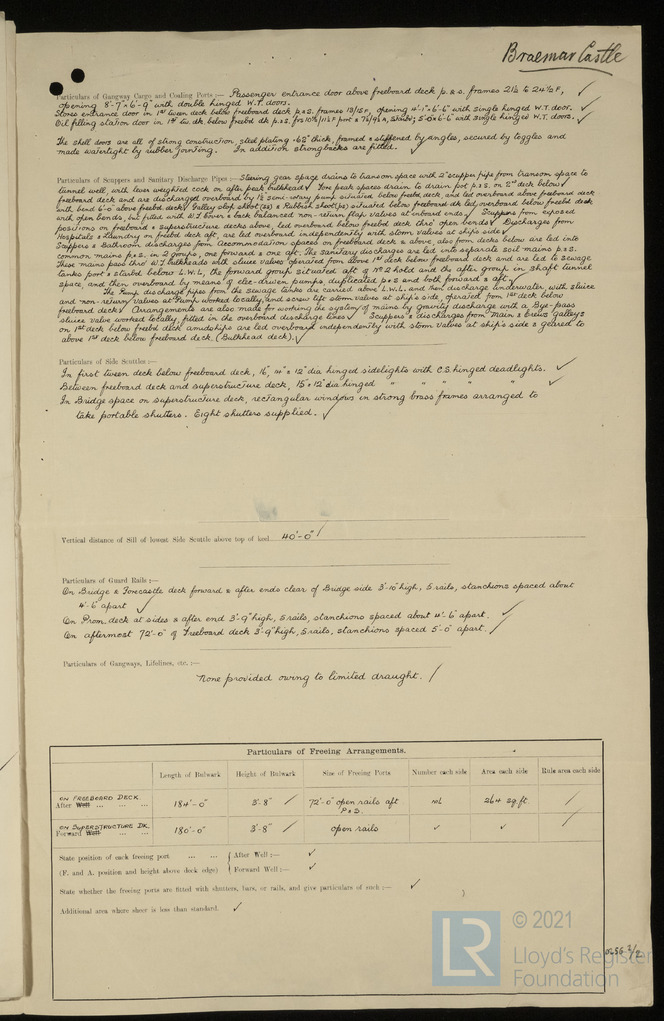 Braemar Castle
Particulars of Gangway Cargo and Coaling Ports :— Passenger entrance door above freeboard deck p. & s. frames 21½ to 24½ F,
opening 8'-7" x 6'-9" with double hinged W.T. doors.
Stores entrance door in 1st tween deck below freeboard deck p&s. frames 13/15 F, opening 4'-1" x 6'-6" with single hinged W.T. door.
Oil filling station door in 1st tw. dk. below freebd dk p&s. with single hinged W.T. doors.
The shell doors are all of strong construction, steel plating ·62" thick, framed & stiffened by angles, secured by toggles and
made watertight by rubber jointing. In addition strongbacks are fitted.
Particulars of Scuppers and Sanitary Discharge Pipes :— Steering gear space drains to transom space with 2" scupper pipe from transom space to
tunnel well, with lever weighted cock on after peak bulkhead. Fore peak spaces drain to drain pot p&s. on 2nd deck below
freeboard deck and are discharged overboard by 1½" semi-rotary pump situated below freebd deck, and led overboard above freeboard deck
with bend 6'-0" above freebd deck. Galley slop shoot (2s) & Rubbish shoot (ps) situated below freeboard dk led overboard below freebd deck
with open bends, but fitted with W.T. cover & back balanced non-return flap valves at inboard ends. Scuppers from exposed
positions on freeboard & superstructure decks above, led overboard below freebd deck thro' open bends. Discharges from
Hospitals & Laundry on freebd deck aft, are led overboard independently with storm valves at ships side.
Scuppers & Bathroom discharges from Accommodation spaces on freeboard deck & above, also from decks below are led into
common mains p&s. in 2 groups, one forward & one aft. The sanitary discharges are led into separate soil mains p&s.
These mains pass thro' W.T. bulkheads with sluice valves operated from above 1st deck below freeboard deck and are led to sewage
tanks port & starbd below L.W.L, the forward group situated aft of No 2 hold and the after group in shaft tunnel
space, and then overboard by means of elec-driven pumps, duplicated p&s and both forward & aft.
The Pump discharge pipes from the sewage tanks are carried above L.W.L and then discharge underwater with sluice
and non-return valves at Pump worked locally, and screw lift storm valves at ship's side, operated from 1st deck below
freeboard deck. Arrangements are also made for working the system of mains by gravity discharge with a Bye-pass
sluice valve worked locally, fitted in the overboard discharge lines. Scuppers & discharges from Main & crews galleys
on 1st deck below freebd deck amidships are led overboard independently with storm valves at ship's side & geared to
above 1st deck below freeboard deck. (Bulkhead deck).
Particulars of Side Scuttles :—
In first tween deck below freeboard deck, 16", & 12" dia hinged sidelights with C.S. hinged deadlights.
Between freeboard deck and superstructure deck, 15" & 12" dia hinged " " " " "
In Bridge space on superstructure deck, rectangular windows in strong brass frames arranged to
take portable shutters. Eight shutters supplied.
Vertical distance of Sill of lowest Side Scuttle above top of keel 40'-0"
Particulars of Guard Rails :—
On Bridge & Forecastle deck forward & after ends clear of Bridge side 3'-10" high, 5 rails, stanchions spaced about
4'-6" apart
On Prom. deck at sides & after end 3'-9" high, 5 rails, stanchions spaced about 4'-6" apart.
On aftermost 72'-0" of Freeboard deck 3'-9" high, 5 rails, stanchions spaced 5'-0" apart.
Particulars of Gangways, Lifelines, etc. :—
None provided owing to limited draught.
Particulars of Freeing Arrangements.
Length of Bulwark Height of Bulwark Size of Freeing Ports Number each side Area each side Rule area each side
ON FREEBOARD DECK.
After Well ... ... ... 184'-0" 3'-8" 72'-0" open rails aft P & S. nil 264 sq. ft.
ON SUPERSTRUCTURE DK.
Forward Well ... ... 180'-0" 3'-8" open rails
State position of each freeing port ... ... After Well :—
(F. and A. position and height above deck edge) Forward Well :—
State whether the freeing ports are fitted with shutters, bars, or rails, and give particulars of such :—
Additional area where sheer is less than standard.
LR
© 2021
Lloyd's Register
Foundation
0256 2/2